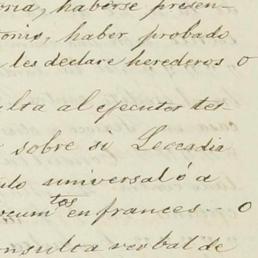 oria, haberse presen-
tonio, haber probado
les declare herederos o
ulta al ejecutor tes
sobre si Leccadia
ulo universal ó a
ocum tos en frances - o
onsulta verbal de